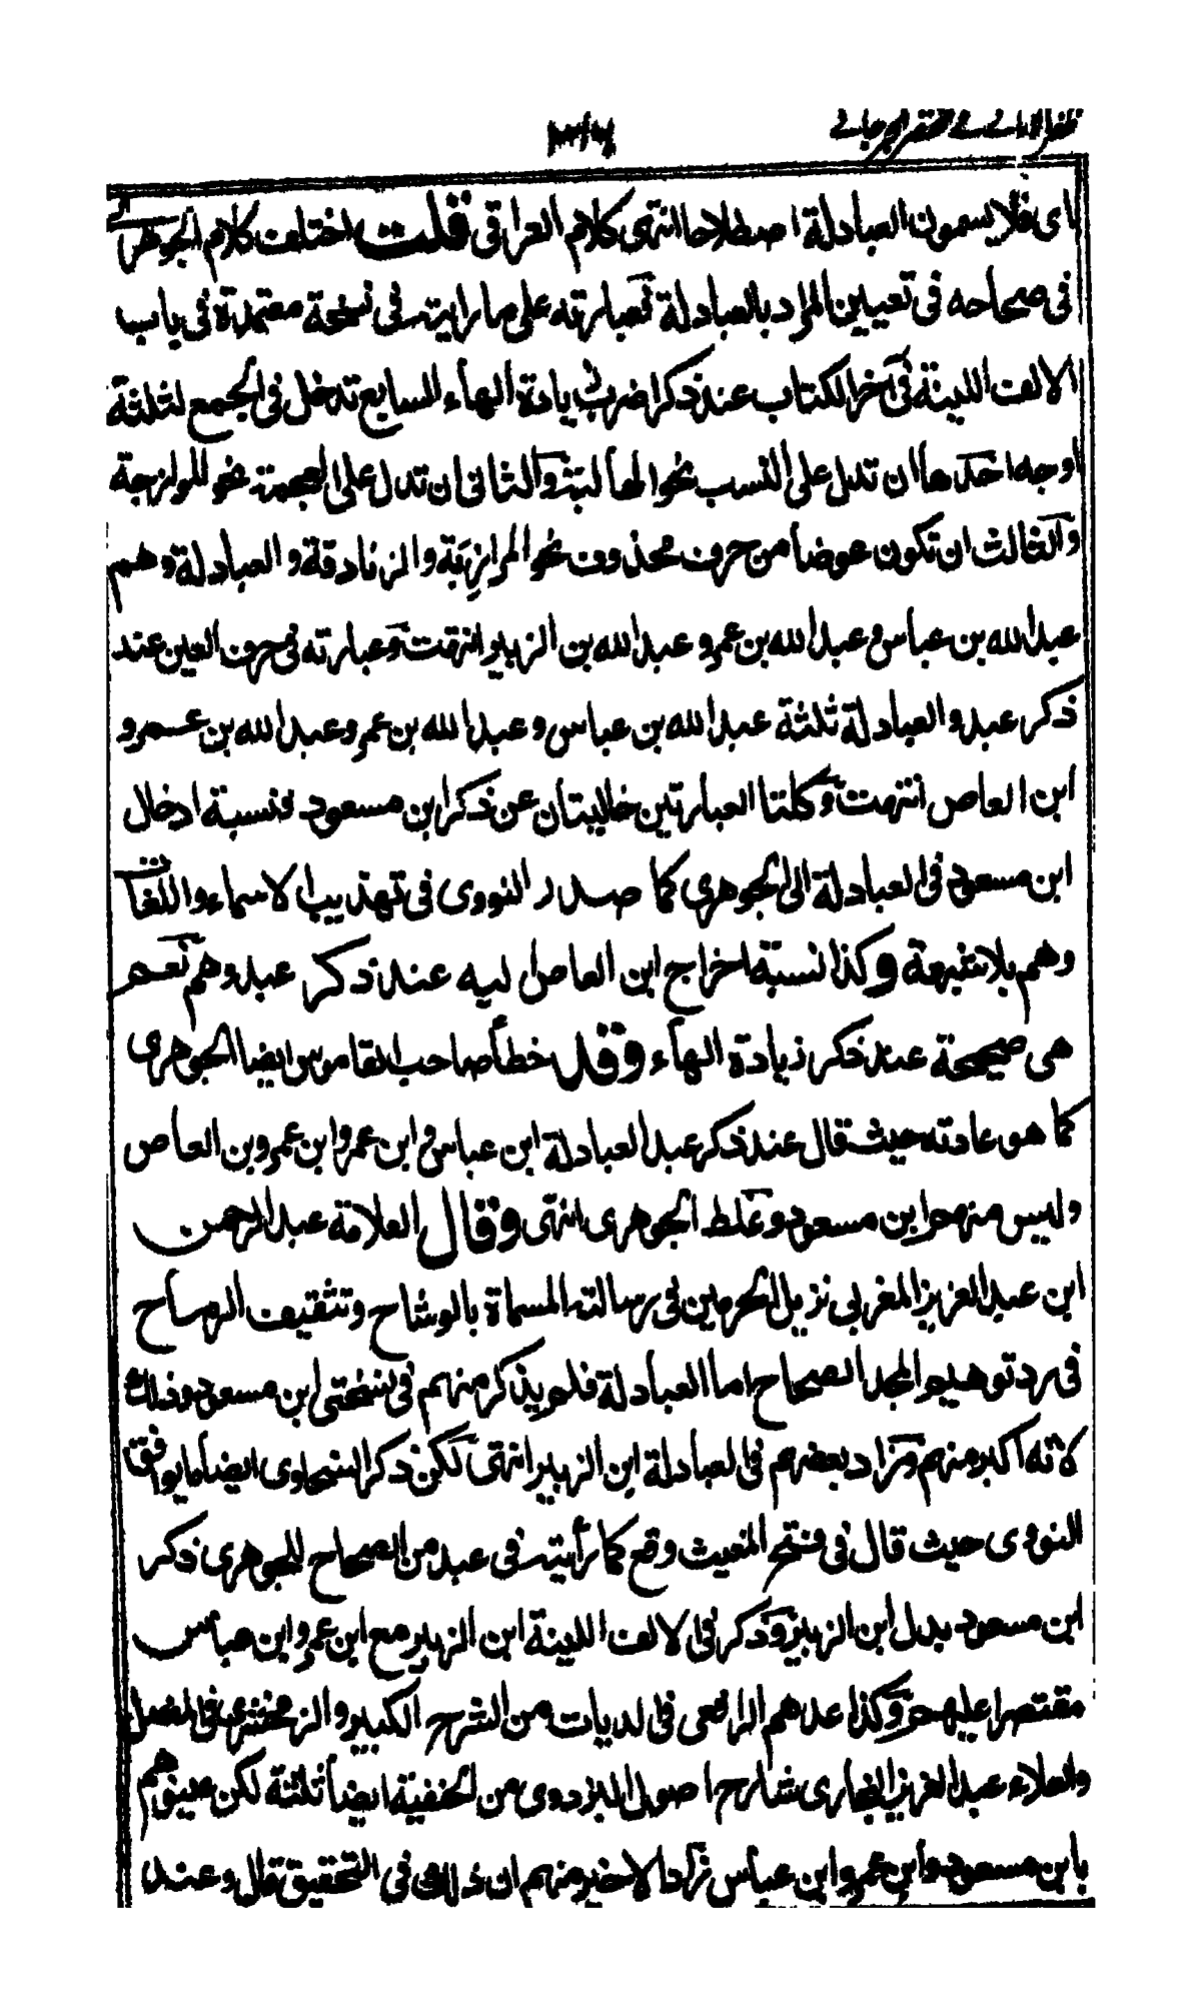 ظفر الاماني في مختصر الجرجاني
اى فلا يسمون العبادلة اصطلاحا انتهى كلام العراقى قلت اختلف كلام الجوهرى
فى صحاحه فى تعيين المراد بالعبادلة فعبارته على ما رايته فى نسخة معتمدة فى باب
الالف اللينة فى آخر الكتاب عند ذكر اضرب زيادة الهاء السابع تدخل فى الجمع لثلثة
اوجه احدها ان تدل على النسب نحو المهالبة والثانى ان تدل على العجمة نحو الموازجة
والثالث ان تكون عوضا من حرف محذوف نحو المرازبة والزنادقة والعبادلة وهم
عبد الله بن عباس وعبد الله بن عمرو عبد الله بن الزبير انتهت وعبارته فى حرف العين عند
ذكر عبد والعبادلة ثلثة عبد الله بن عباس وعبد الله بن عمر وعبد الله بن عمرو
ابن العاص انتهت وكلتا العبارتين خاليتان عن ذكر ابن مسعود فنسبة ادخال
ابن مسعود فى العبادلة الى الجوهرى كما صدر النووى فى تهذيب الاسماء واللغات
وهم بلا شبهة وكذا نسبة اخراج ابن العاص اليه عند ذكر عبد وهم نعم
هى صحيحة عند ذكر زيادة الهاء وقد خطأ صاحب القاموس ايضا الجوهرى
كما هو عادته حيث قال عند ذكر عبد العبادلة ابن عباس وابن عمر وابن عمرو بن العاص
وليس منهم ابن مسعود وغلط الجوهرى انتهى وقال العلامة عبد الرحمن
ابن عبد العزيز المغربى نزيل الحرمين فى رسالته المسماة بالوشاح وتثقيف الرماح
فى رد توهيم المجد الصحاح اما العبادلة فلم يذكر منهم فى نسختى ابن مسعود وذلك
لانه اكبر منهم وزاد بعضهم فى العبادلة ابن الزبير انتهى لكن ذكر السخاوى ايضا ما يوافق
النووى حيث قال فى فتح المغيث وقع كما رأيته فى عبد من الصحاح للجوهرى ذكر
ابن مسعود بدل ابن الزبير وذكر فى الالف اللينة ابن الزبير مع ابن عمر وابن عباس
مقتصرا عليهم وكذا عدهم الرافعى فى الديات من الشرح الكبير والزمخشرى فى المفصل
والعلاء عبد العزيز البخارى شارح اصول البزدوى من الحنفية ايضا ثلثة لكن عينوهم
بابن مسعود وابن عمر وابن عباس زاد الاخير منهم ان ذلك فى التحقيق قال وعند